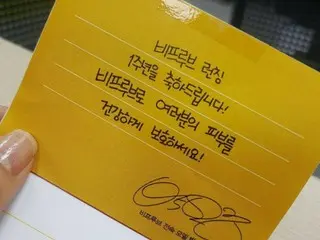 비프루브 런칭
1주년을 축하드립니다!
비프루브로 여러분의 피부를
건강하게 보호하세요!
비프루브 전속 모델